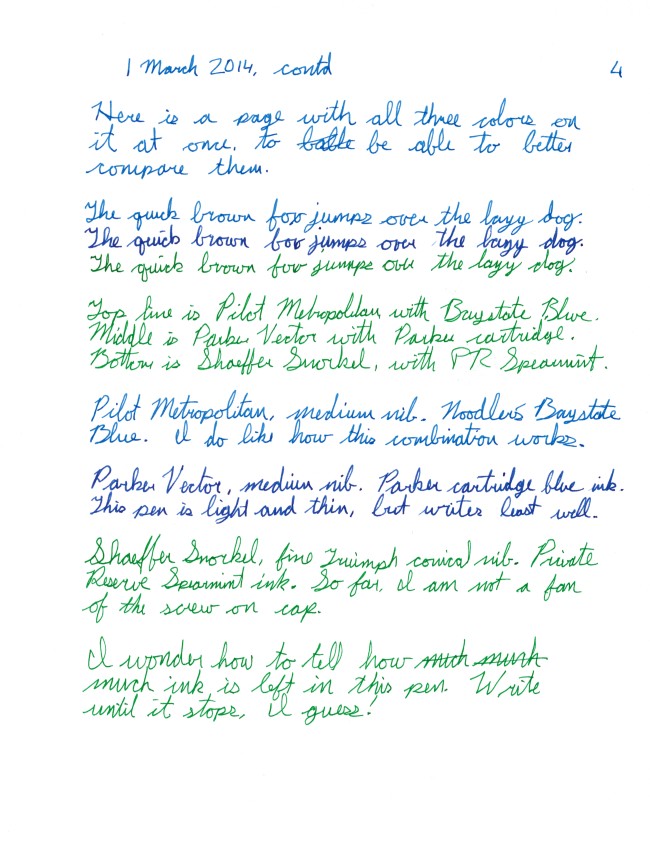 1 March 2014, contd
4
Here is a page with all three colors on
it at once, to be able to better
compare them.
The quick brown fox jumps over the lazy dog.
The quick brown fox jumps over the lazy dog.
The quick brown fox jumps over the lazy dog.
Top line is Pilot Metropolitan with Baystate Blue.
Middle is Parker Vector with Parker cartridge.
Bottom is Shaeffer Snorkel, with PR Spearmint.
Pilot Metropolitan, medium nib. Noodlers Baystate
Blue. I do like how this combination works.
Parker Vector, medium nib. Parker cartridge blue ink.
This pen is light and thin, but writes least well.
Shaeffer Snorkel, fine Triumph conical nib. Private
Reserve Spearmint ink. So far, I am not a fan
of the screw on cap.
I wonder how to tell how much much
much ink is left in this pen. Write
until it stops, I guess!